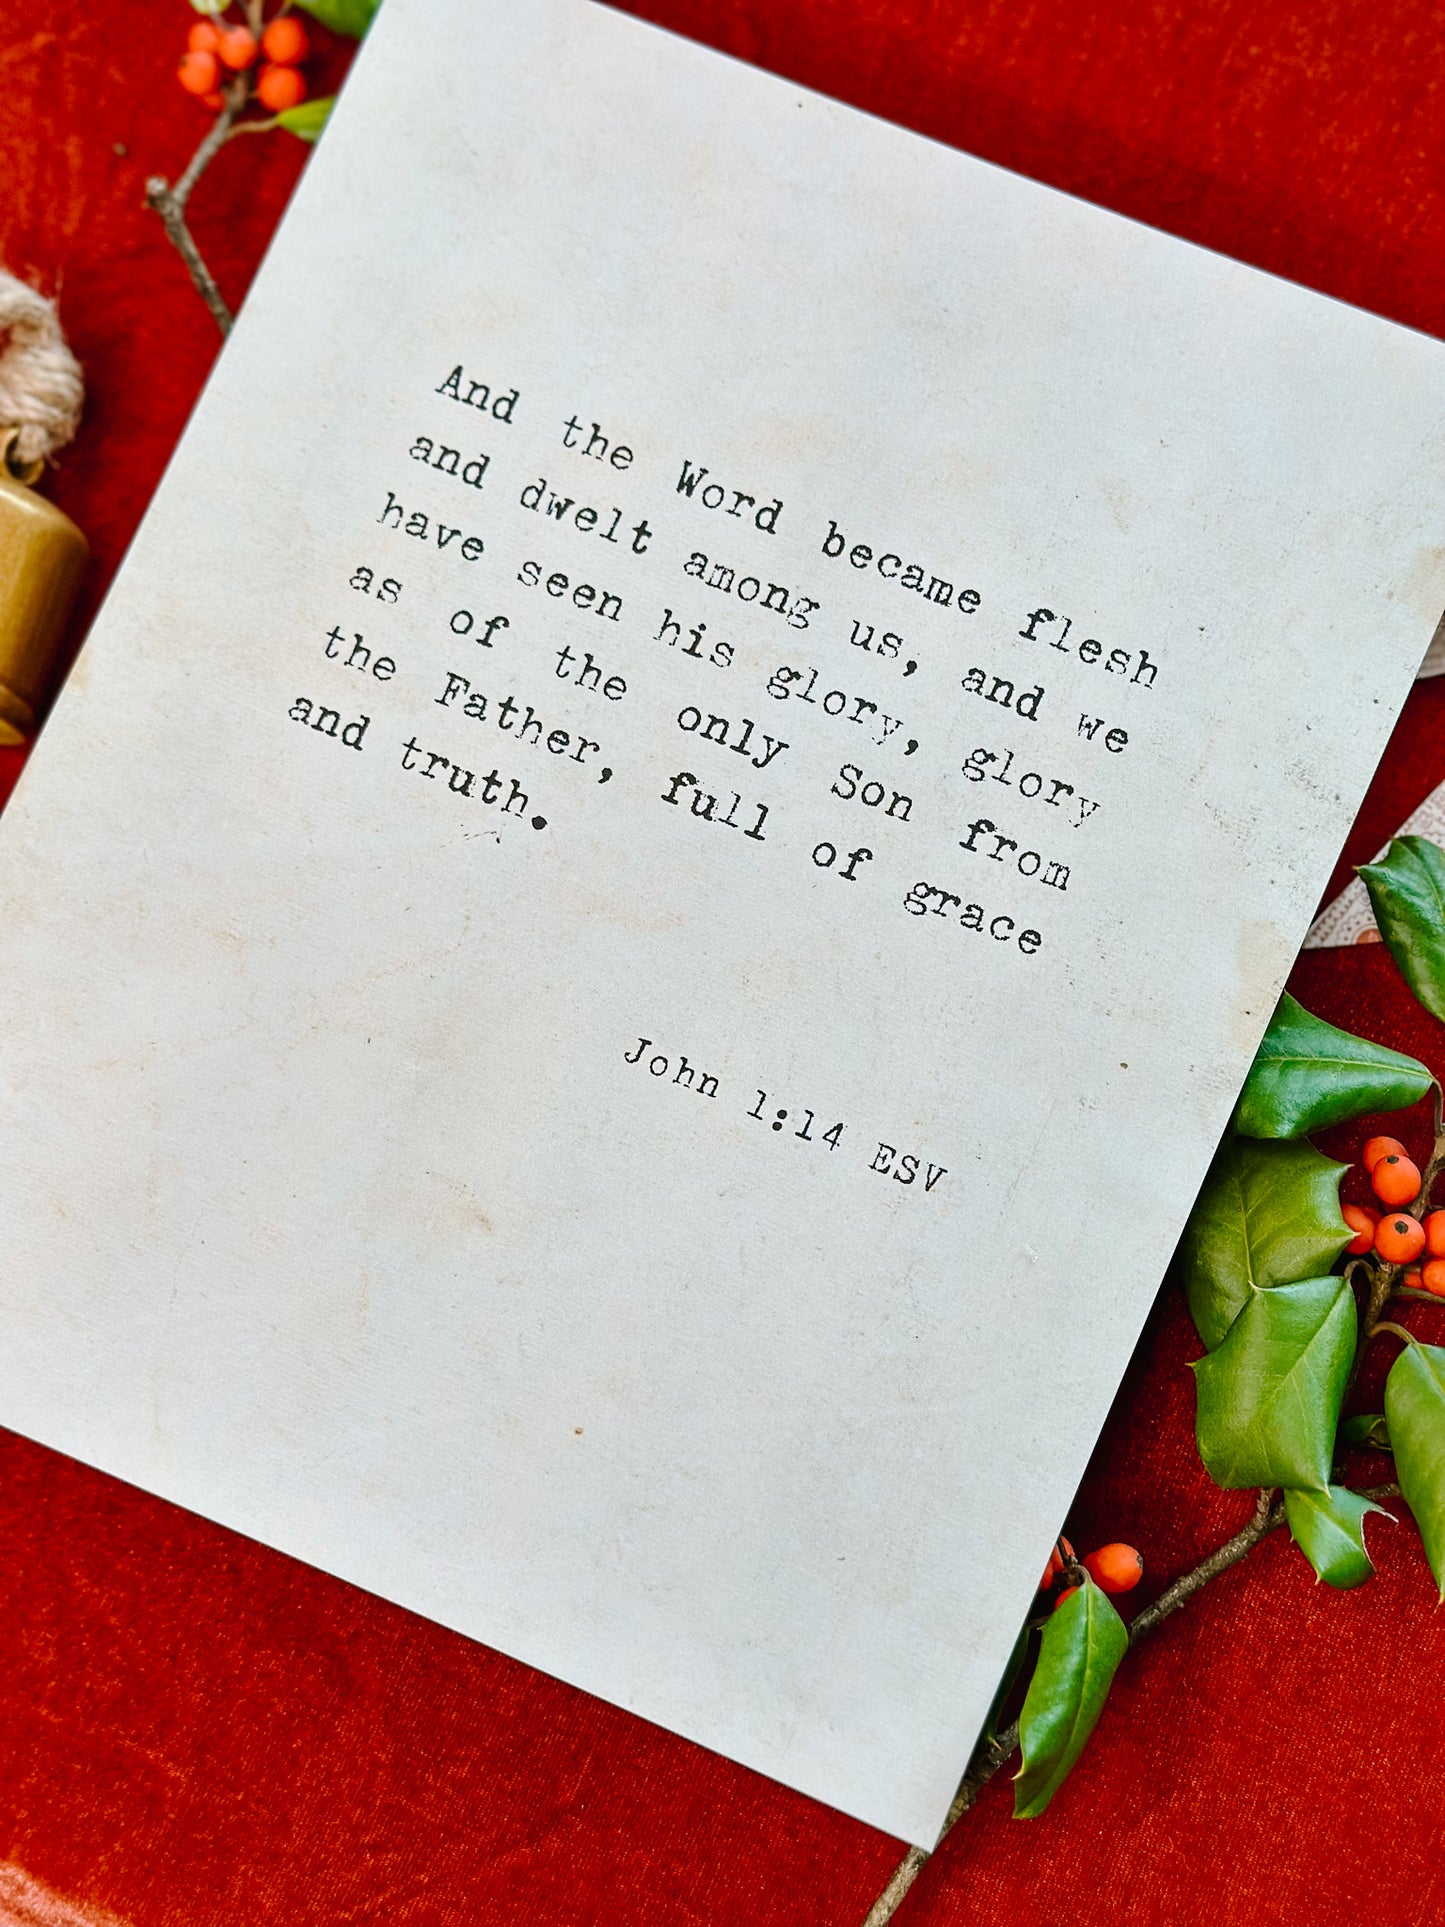 And the Word became flesh
and dwelt among us, and we
have seen his glory, glory
as of the only Son from
the Father, full of grace
and truth.
John 1:14 ESV